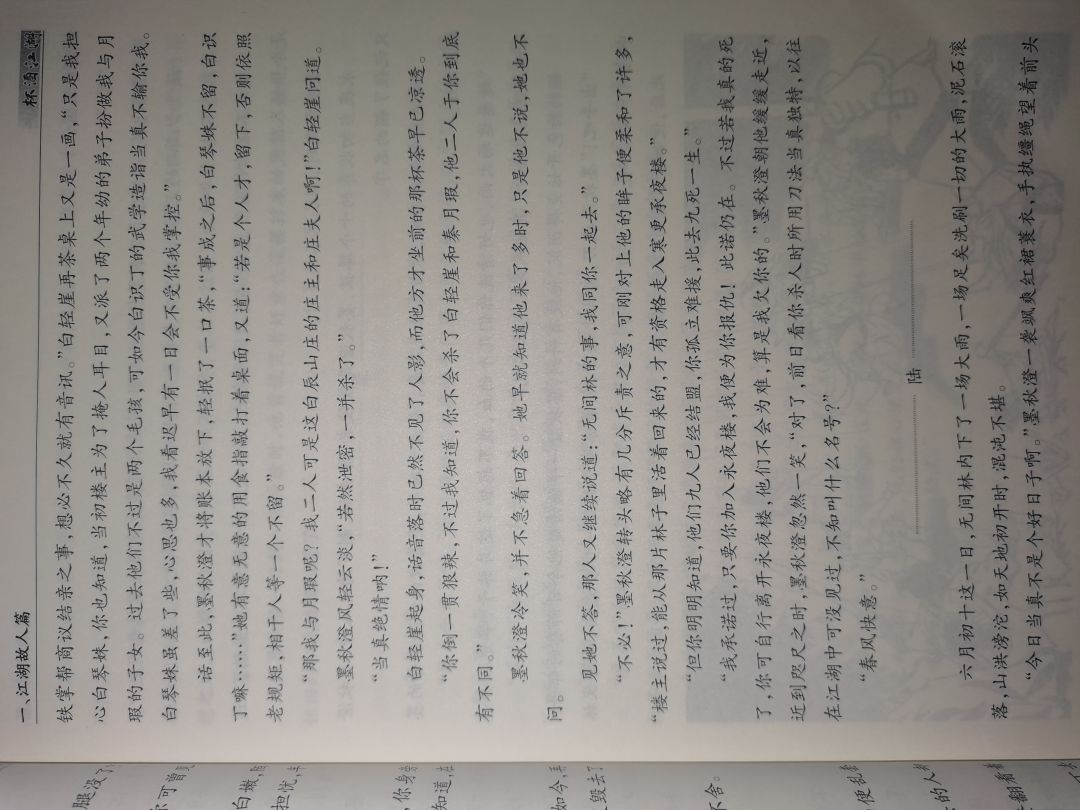 一、江湖故人篇
杯酒江湖
铁掌帮商议结亲之事，想必不久就有音讯。”白轻崖再茶桌上又是一画，“只是我担
心白琴姝，你也知道，当初楼主为了掩人耳目，又派了两个年幼的弟子扮做我与月
瑕的子女。过去他们不过是两个毛孩，可如今白识丁的武学造诣当真不输你我。
白琴姝虽差了些，心思也多，我看迟早有一日会不受你我掌控。”
话至此，墨秋澄才将账本放下，轻抿了一口茶，“事成之后，白琴姝不留，白识
丁嘛……”她有意无意的用食指敲打着桌面，又道：“若是个人才，留下，否则依照
老规矩，相干人等一个不留。”
“那我与月瑕呢？我二人可是这白辰山庄的庄主和庄夫人啊！”白轻崖问道。
墨秋澄风轻云淡，“若然泄密，一并杀了。”
“当真绝情呐！”
白轻崖起身，话音落时已然不见了人影，而他方才坐前的那杯茶早已凉透。
“你倒一贯狠辣，不过我知道，你不会杀了白轻崖和秦月瑕，他二人于你到底
有不同。”
墨秋澄冷笑，并不急着回答。她早就知道他来了多时，只是他不说，她也不
问。
见她不答，那人又继续说道：“无间林的事，我同你一起去。”
“不必！”墨秋澄转头略有几分斥责之意，可刚对上他的眸子便柔和了许多，
“楼主说过，能从那片林子里活着回来的，才有资格走入寒更承夜楼。”
“但你明明知道，他们九人已经结盟，你孤立难援，此去九死一生。”
“我承诺过，只要你加入永夜楼，我便为你报仇！此诺仍在。不过若我真的死
了，你可自行离开永夜楼，他们不会为难，算是我欠你的。”墨秋澄朝他缓缓走近，
近到咫尺之时，墨秋澄忽然一笑，“对了，前日看你杀人时所用刀法当真独特，以往
在江湖中可没见过，不知叫什么名号？”
“春风快意。”
陆
六月初十这一日，无间林内下了一场大雨，一场足矣洗刷一切的大雨，泥石滚
落，山洪滂沱，如天地初开时，混沌不堪。
“今日当真不是个好日子啊。”墨秋澄一袭飒爽红裙蓑衣，手执缰绳望着前头
腿没了
你可曾
白墩，
担忧，
，你身
知道，
如今，
毁去了
不舍。
便乱
的人
翻看